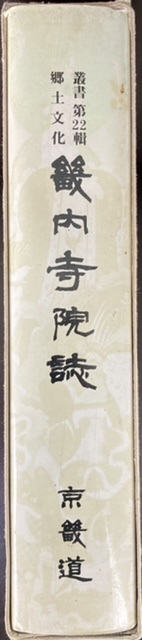 郷土文化
叢書 第22輯
畿内寺院誌
京畿道